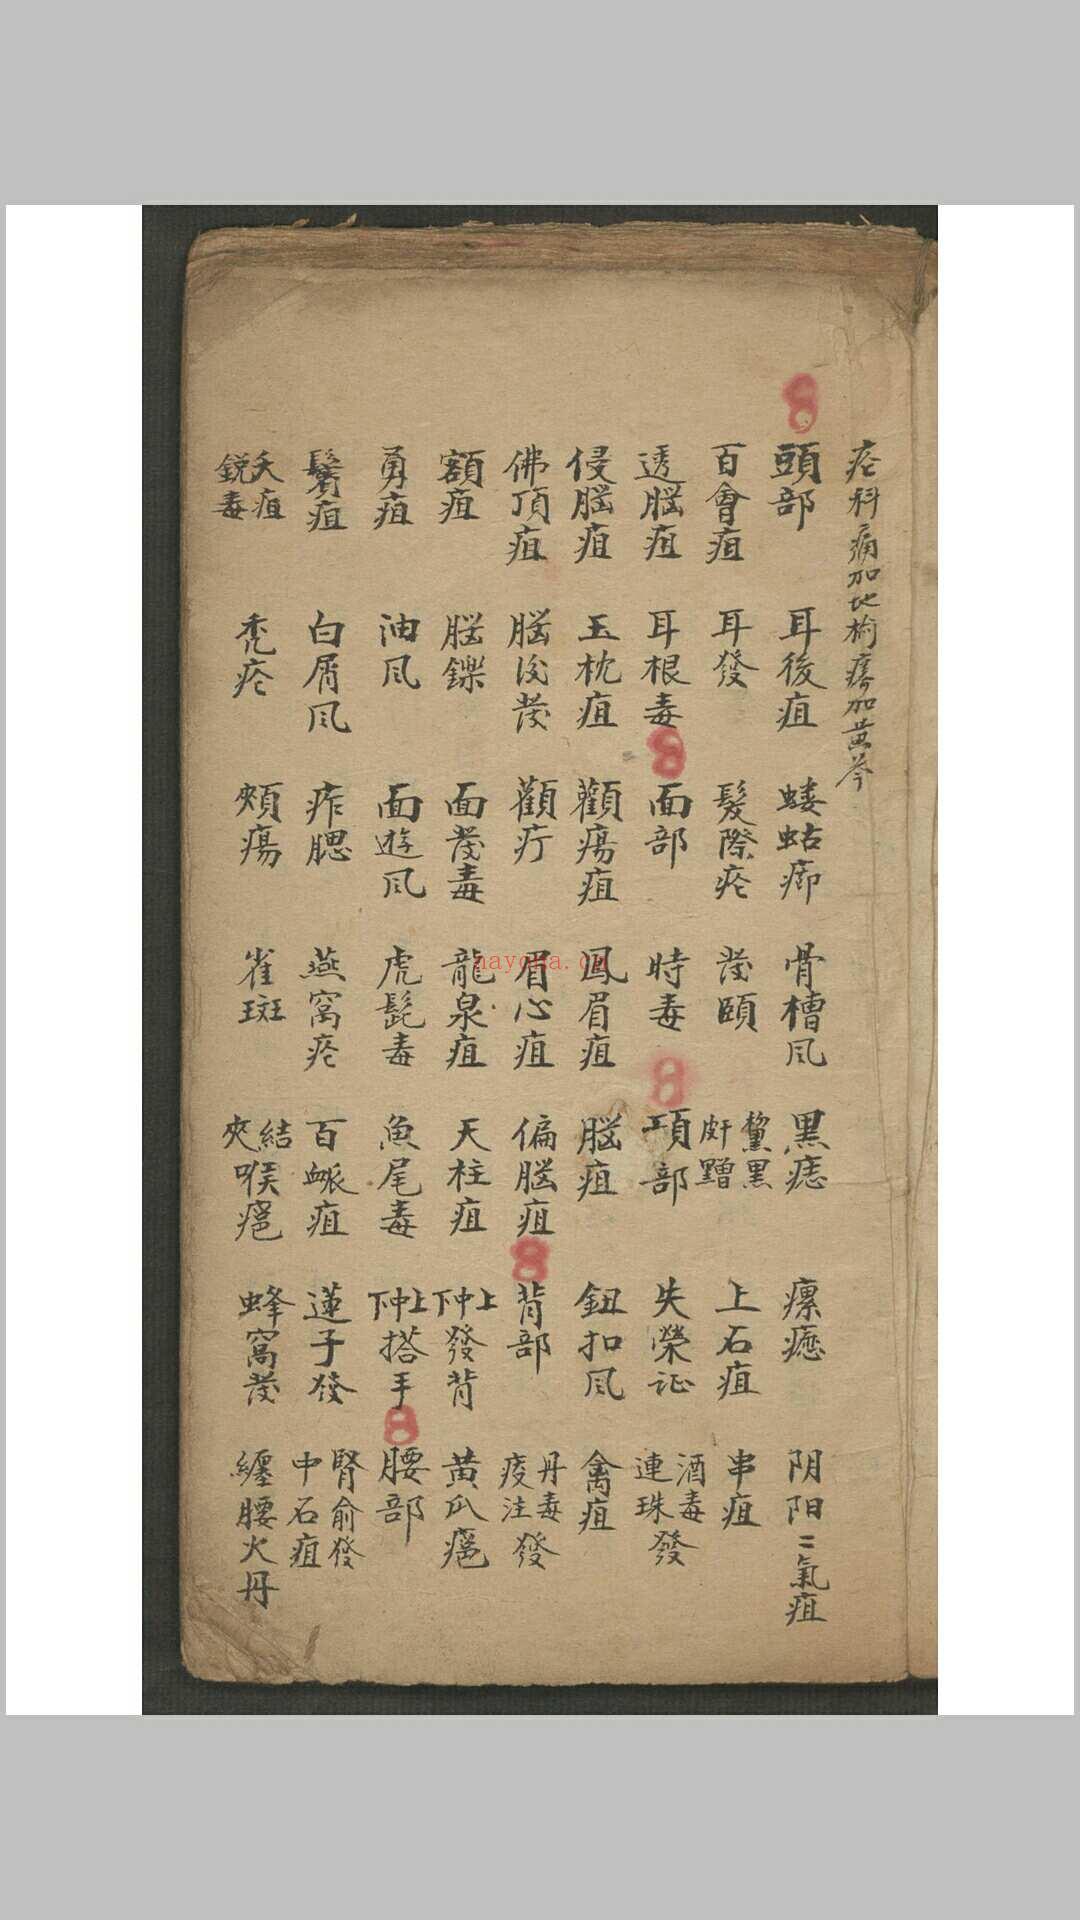 疮科痛加地榆痒加黄芩
頭部
百會疽
透脳疽
侵脳疽
佛頂疽
額疽
勇疽
鬢疽
夭疽
銳毒
耳後疽
耳發
耳根毒
玉枕疽
脳後發
脳鑠
油風
白屑風
禿疮
螻蛄癤
髮際疮
面部
顴瘍疽
顴疔
面發毒
面遊風
痄腮
頰瘍
骨槽風
發頤
時毒
鳳眉疽
眉心疽
龍泉疽
虎髭毒
燕窩疮
雀斑
黑痣
黧黑
皯䵳
項部
脳疽
偏脳疽
天柱疽
魚尾毒
百脈疽
結喉癰
夾喉癰
瘰癧
上石疽
失榮证
鈕扣風
背部
上中下發背
上中下搭手
蓮子發
蜂窩發
阴阳二氣疽
串疽
酒毒發
連珠發
禽疽
丹毒發
疫注發
黄瓜癰
腰部
腎俞發
中石疽
纏腰火丹